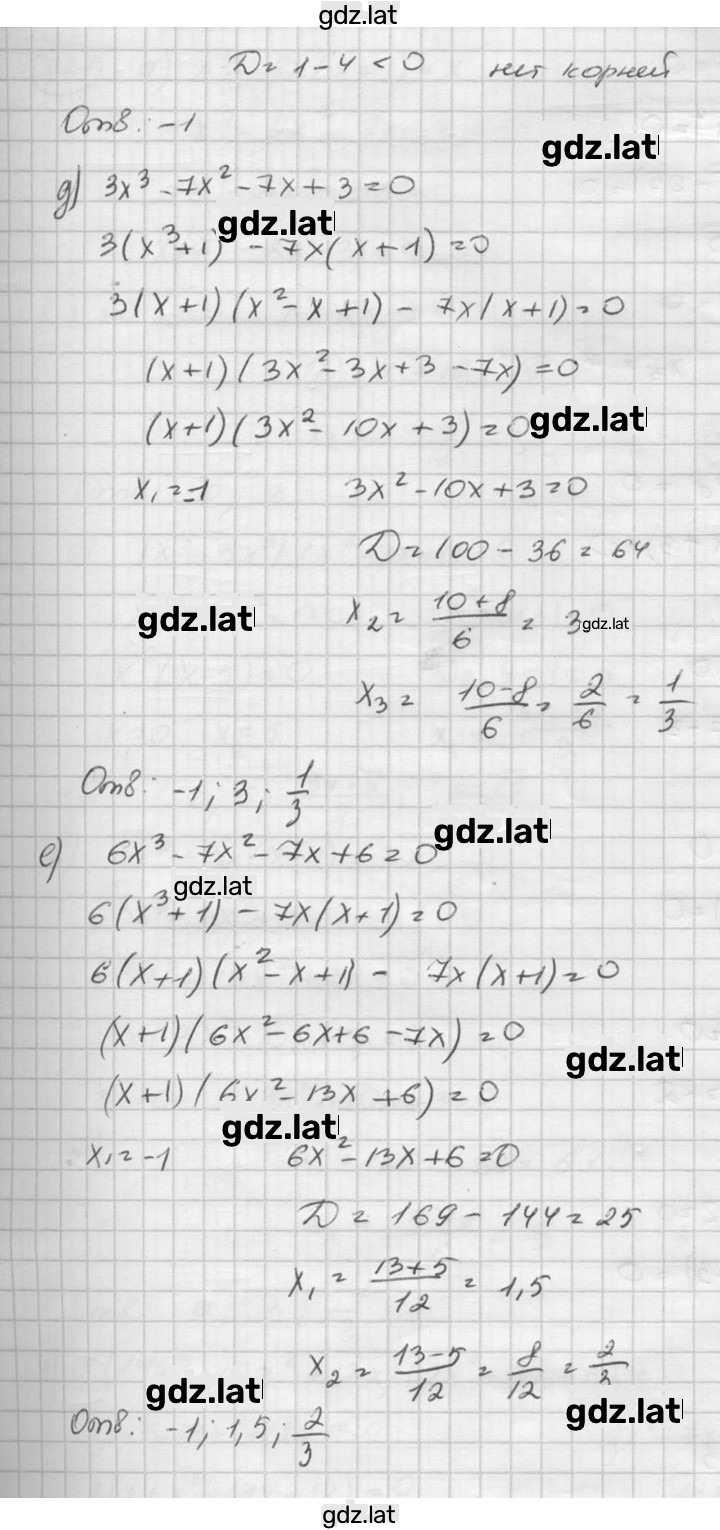 gdz.lat
D = 1 - 4 < 0 нет корней
Отв: -1
gdz.lat
д) 3x³ - 7x² - 7x + 3 = 0
gdz.lat
3(x³ + 1) - 7x(x + 1) = 0
3(x + 1)(x² - x + 1) - 7x(x + 1) = 0
(x + 1)(3x² - 3x + 3 - 7x) = 0
(x + 1)(3x² - 10x + 3) = 0 gdz.lat
x₁ = -1 3x² - 10x + 3 = 0
D = 100 - 36 = 64
gdz.lat x₂ = (10 + 8)/6 = 3 gdz.lat
x₃ = (10 - 8)/6 = 2/6 = 1/3
Отв: -1; 3; 1/3
gdz.lat
е) 6x³ - 7x² - 7x + 6 = 0
gdz.lat
6(x³ + 1) - 7x(x + 1) = 0
6(x + 1)(x² - x + 1) - 7x(x + 1) = 0
(x + 1)(6x² - 6x + 6 - 7x) = 0
gdz.lat
(x + 1)(6x² - 13x + 6) = 0
gdz.lat
x₁ = -1 6x² - 13x + 6 = 0
D = 169 - 144 = 25
x₁ = (13 + 5)/12 = 1,5
x₂ = (13 - 5)/12 = 8/12 = 2/3
gdz.lat
gdz.lat
Отв: -1; 1,5; 2/3
gdz.lat